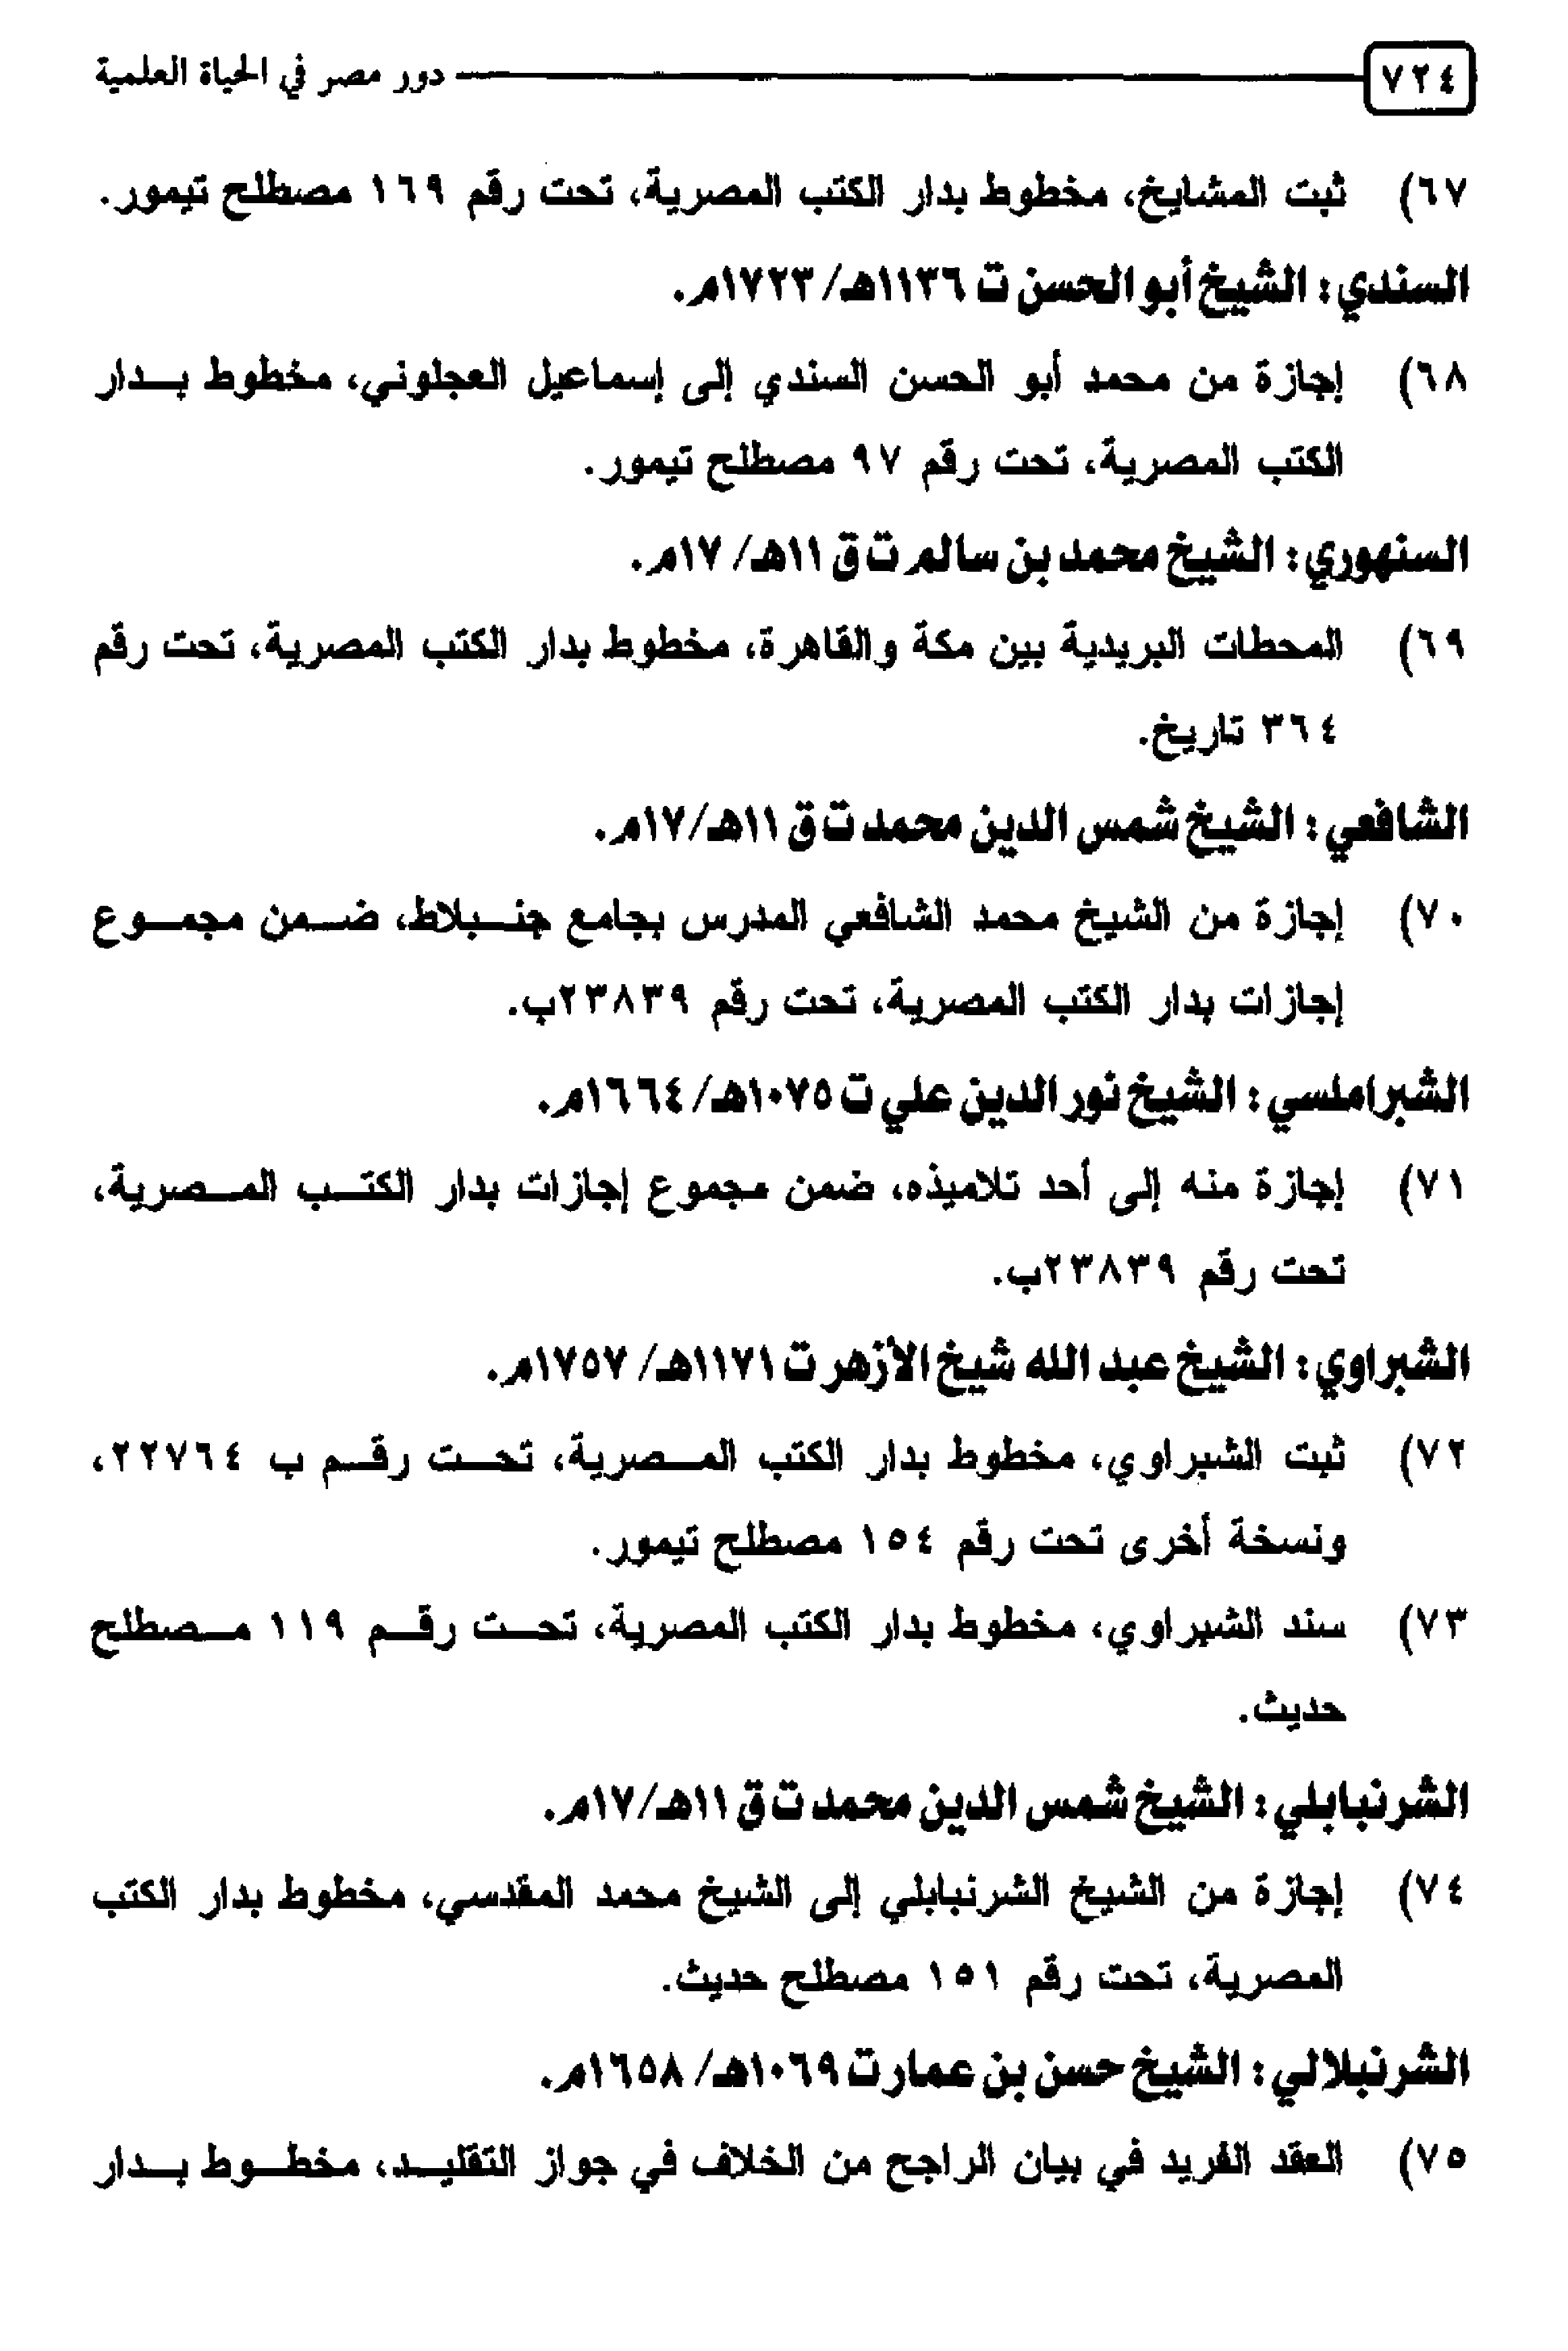 ٧٢٤ دور مصر في الحياة العلمية
٦٧) ثبت المشايخ، مخطوط بدار الكتب المصرية، تحت رقم ١٦٩ مصطلح تيمور.
السندي: الشيخ أبو الحسن ت ١١٣٦هـ/ ١٧٢٣م.
٦٨) إجازة من محمد أبو الحسن السندي إلى إسماعيل العجلوني، مخطوط بدار
الكتب المصرية، تحت رقم ٩٧ مصطلح تيمور.
السنهوري: الشيخ محمد بن سالم ت ق ١١هـ/ ١٧م.
٦٩) المحطات البريدية بين مكة والقاهرة، مخطوط بدار الكتب المصرية، تحت رقم
٣٦٤ تاريخ.
الشافعي: الشيخ شمس الدين محمد ت ق ١١هـ/١٧م.
٧٠) إجازة من الشيخ محمد الشافعي المدرس بجامع جنبلاط، ضمن مجموع
إجازات بدار الكتب المصرية، تحت رقم ٢٣٨٣٩ب.
الشبراملسي: الشيخ نور الدين علي ت ١٠٧٥هـ/ ١٦٦٤م.
٧١) إجازة منه إلى أحد تلاميذه، ضمن مجموع إجازات بدار الكتب المصرية،
تحت رقم ٢٣٨٣٩ب.
الشبراوي: الشيخ عبد الله شيخ الأزهر ت ١١٧١هـ/ ١٧٥٧م.
٧٢) ثبت الشبراوي، مخطوط بدار الكتب المصرية، تحت رقم ب ٢٢٧٦٤،
ونسخة أخرى تحت رقم ١٥٤ مصطلح تيمور.
٧٣) سند الشبراوي، مخطوط بدار الكتب المصرية، تحت رقم ١١٩ مصطلح
حديث.
الشرنبابلي: الشيخ شمس الدين محمد ت ق ١١هـ/١٧م.
٧٤) إجازة من الشيخ الشرنبابلي إلى الشيخ محمد المقدسي، مخطوط بدار الكتب
المصرية، تحت رقم ١٥١ مصطلح حديث.
الشرنبلالي: الشيخ حسن بن عمار ت ١٠٦٩هـ/ ١٦٥٨م.
٧٥) العقد الفريد في بيان الراجح من الخلاف في جواز التقليد، مخطوط بدار